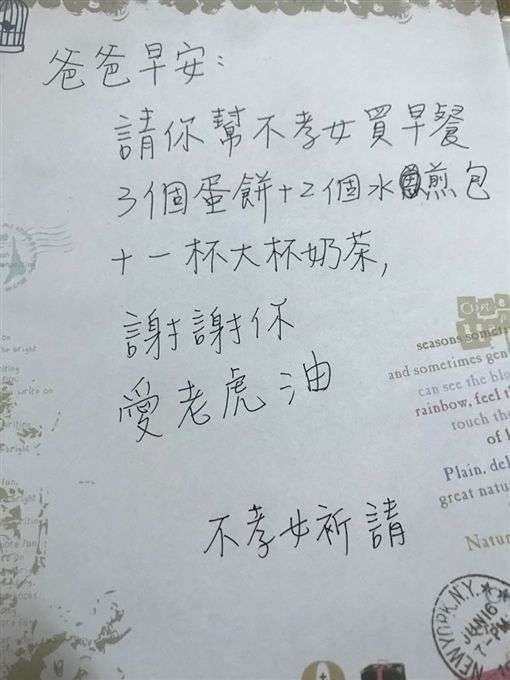 爸爸早安：
請你幫不孝女買早餐
3個蛋餅+2個水煎包
+一杯大杯奶茶，
謝謝你
愛老虎油
不孝女祈請
seasons
and sometimes gen
can see the blu
rainbow, feel t
touch the
of
Plain, del
great natu
Natur
NEW YORK, N.Y.
JUN 16
7-PM